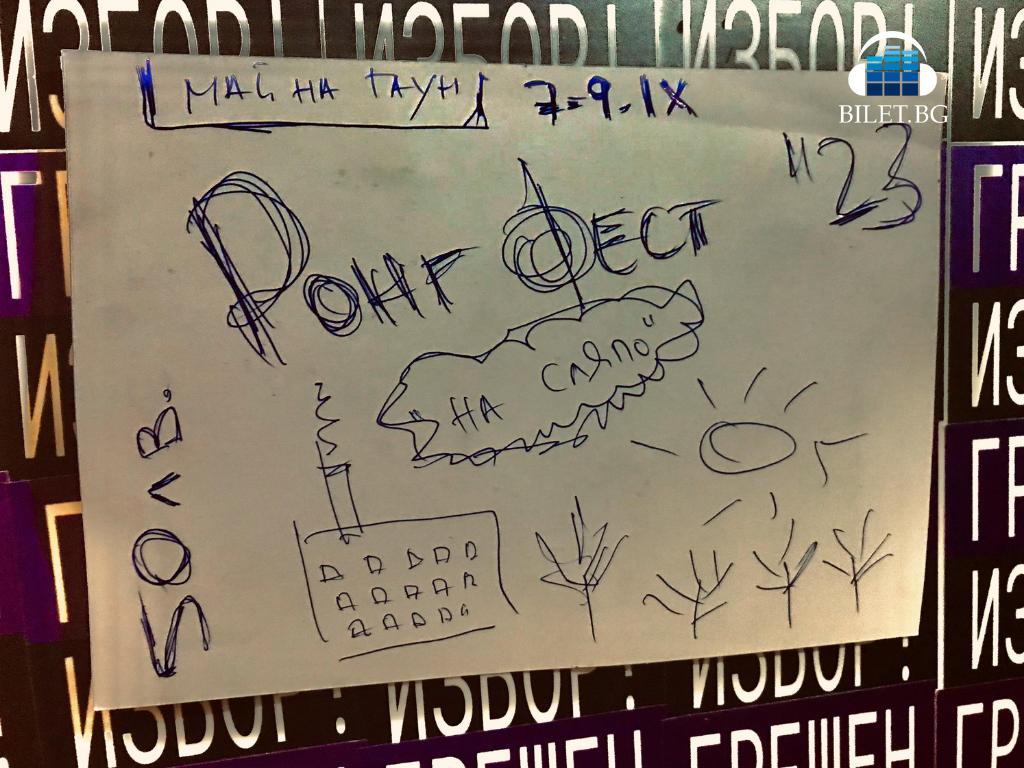 ИЗБОР! ИЗБОР! ИЗБОР! ИЗ
BILET.BG
МАЙНА ТАУН 7-9.IX
"23
РОНГ ФЕСТ
"НА СЛЯПО"
50ЛВ.
Г
ГР
ИЗ
ГР
ИЗ
ИЗБОР! ИЗБОР! ИЗБОР!
ГРЕШЕН ГРЕШЕН ГР